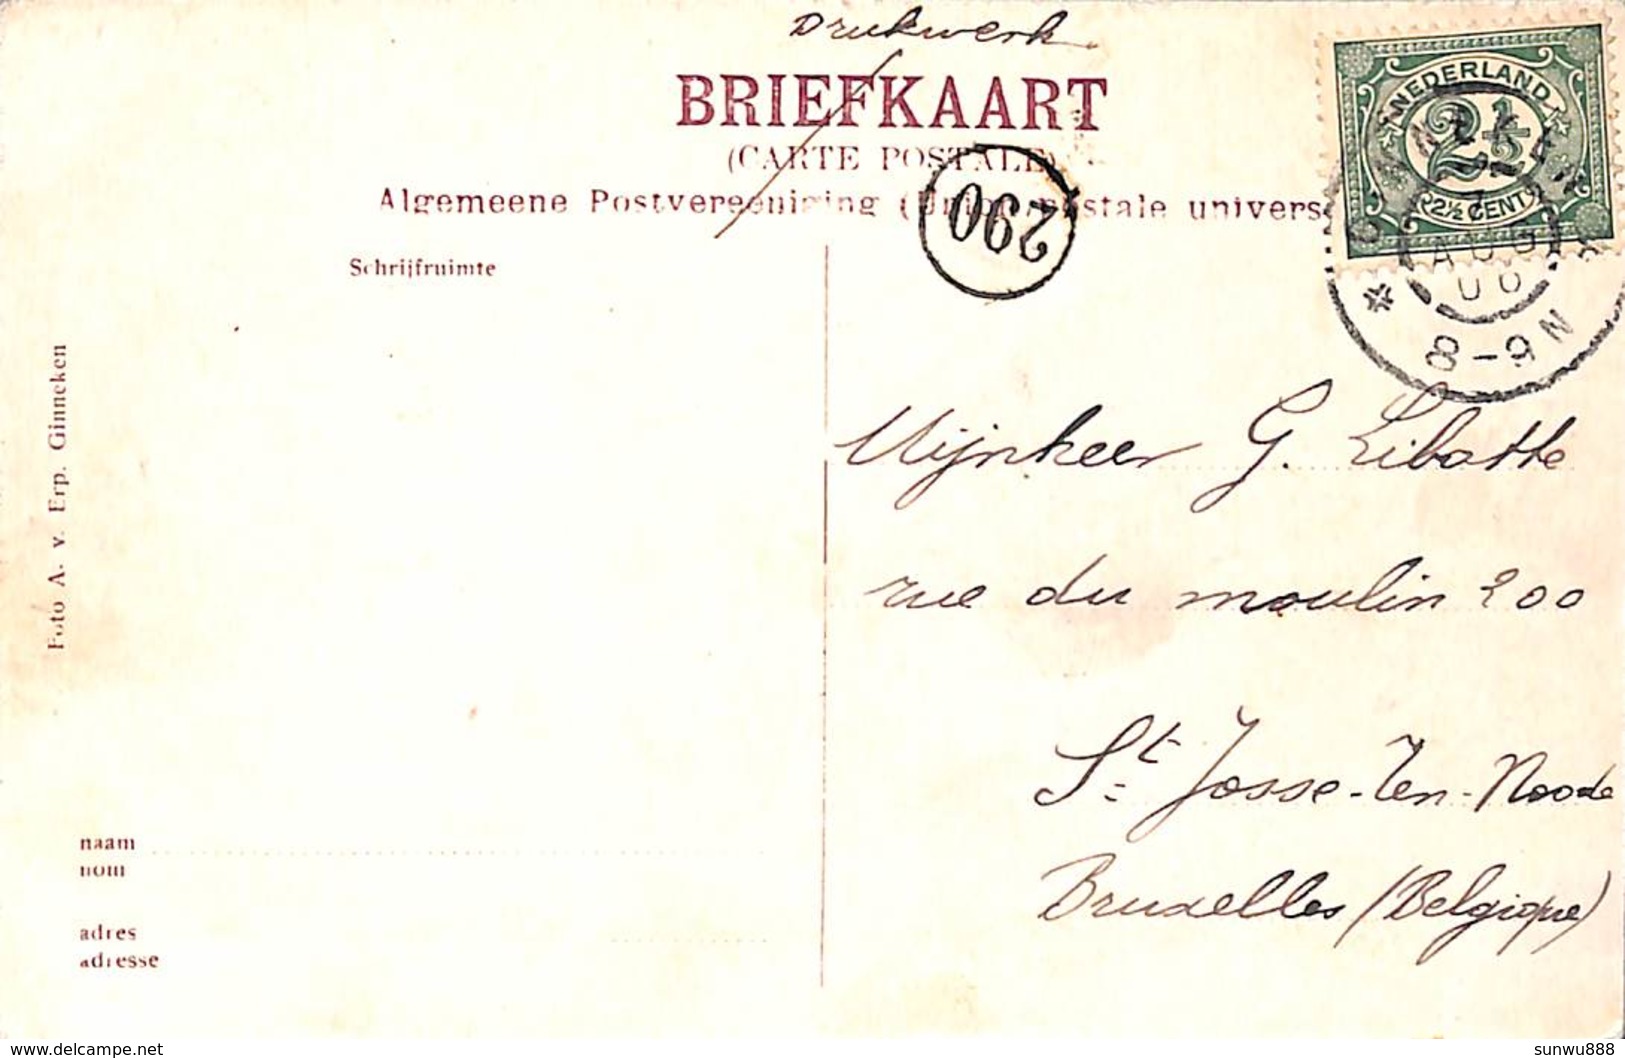 Drukwerk
BRIEFKAART
(CARTE POSTALE)
Algemeene Postvereeniging (Union postale univers
Schrijfruimte
290
NEDERLAND
2½
2½ CENT
7
AUG
06
8-9N
Foto A. v. Erp. Ginneken
Mijnheer G. Libotte
rue du moulin 200
St Josse-Ten-Noode
Bruxelles (Belgique)
naam
nom
adres
adresse
delcampe.net
sunwu888